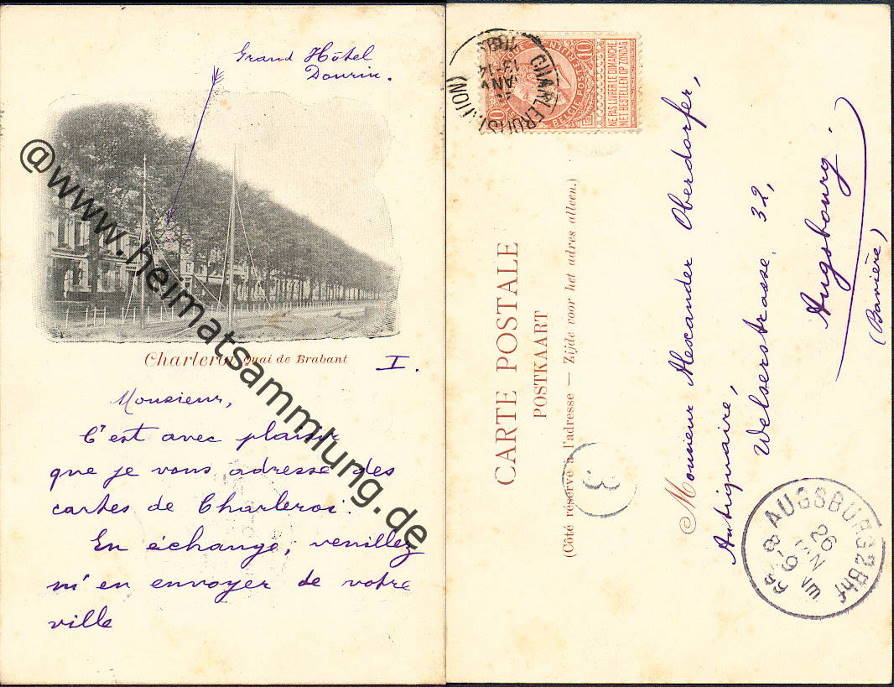 Grand Hôtel
Dourin.
@www.heimatsammlung.de
Charleroi Quai de Brabant
I.
Monsieur,
C'est avec plaisir
que je vous adresse des
cartes de Charleroi.
En échange, veuillez
m'en envoyer de votre
ville
CHARLEROI (STATION)
13-14
JANV
BELGIE POSTERIJEN
10
NE PAS LIVRER LE DIMANCHE
NIET BESTELLEN OP ZONDAG
CARTE POSTALE
POSTKAART
(Côté réservé à l'adresse — Zijde voor het adres alleen.)
3
Monsieur Alexander Oberdorfer,
Antiquaire,
Welserstrasse 32,
Augsbourg.
(Bavière)
AUGSBURG 2 Bhf
26
JAN
8-9 Vm
99